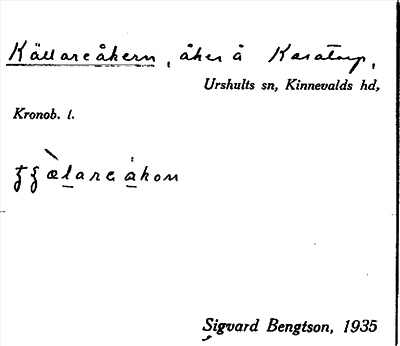 Källareåkern, åker å Karatorp,
Urshults sn, Kinnevalds hd,
Kronob. l.
Sigvard Bengtson, 1935